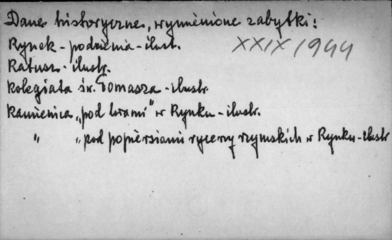 Dane historyczne, wymienione zabytki:
Rynek - podcienia - ilust.
XXIX/1944
Ratusz - ilustr.
Kolegiata św. Tomasza - ilustr
Kamienica „pod lwami” w Rynku - ilustr.
„ „pod popiersiami rycerzy rzymskich w Rynku - ilustr